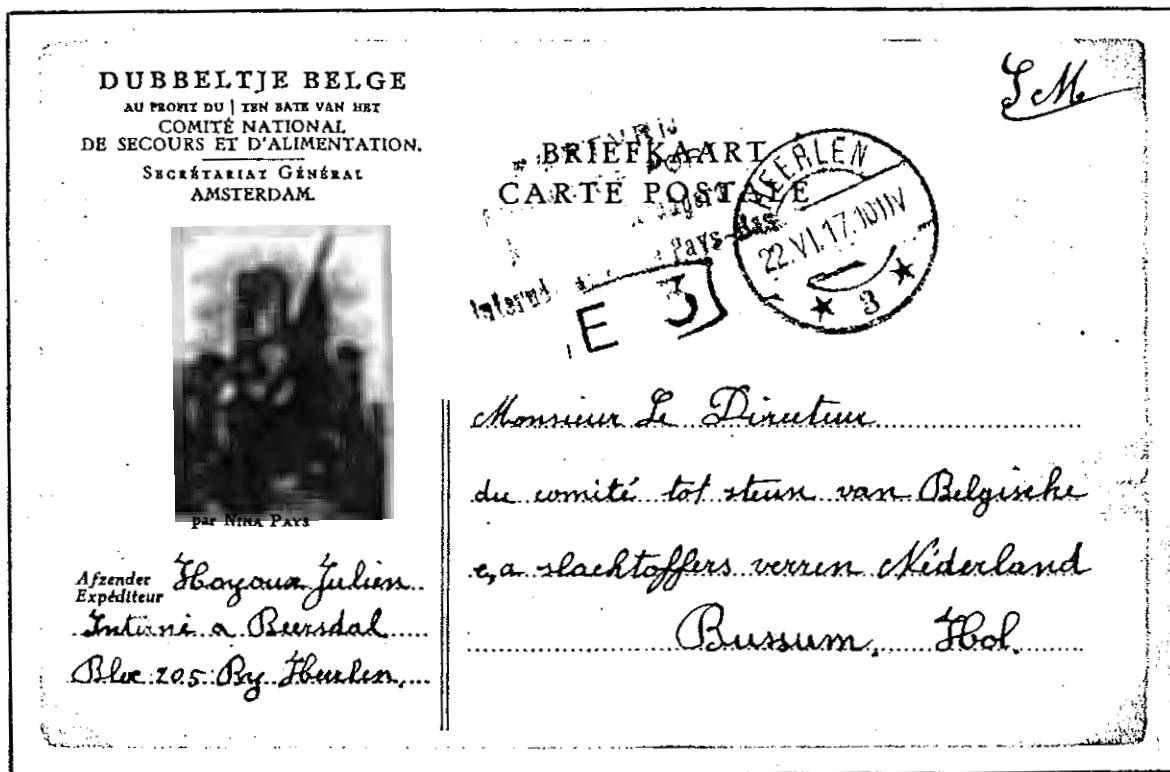 DUBBELTJE BELGE
AU PROFIT DU | TEN BATE VAN HET
COMITÉ NATIONAL
DE SECOURS ET D'ALIMENTATION.
SECRÉTARIAT GÉNÉRAL
AMSTERDAM.
par NINA PAYS
Afzender
Expéditeur
Hoyoux Julien
Interné a Beersdal
Bloc 205 By Heerlen.
S.M
BRIEFKAART
CARTE POSTALE
Pays-Bas
E 3
HEERLEN
22.VI.17.1011V
3
Monsieur Le Directeur
du comité tot steun van Belgische
e,a slachtoffers verren Niderland
Bussum, Hol.